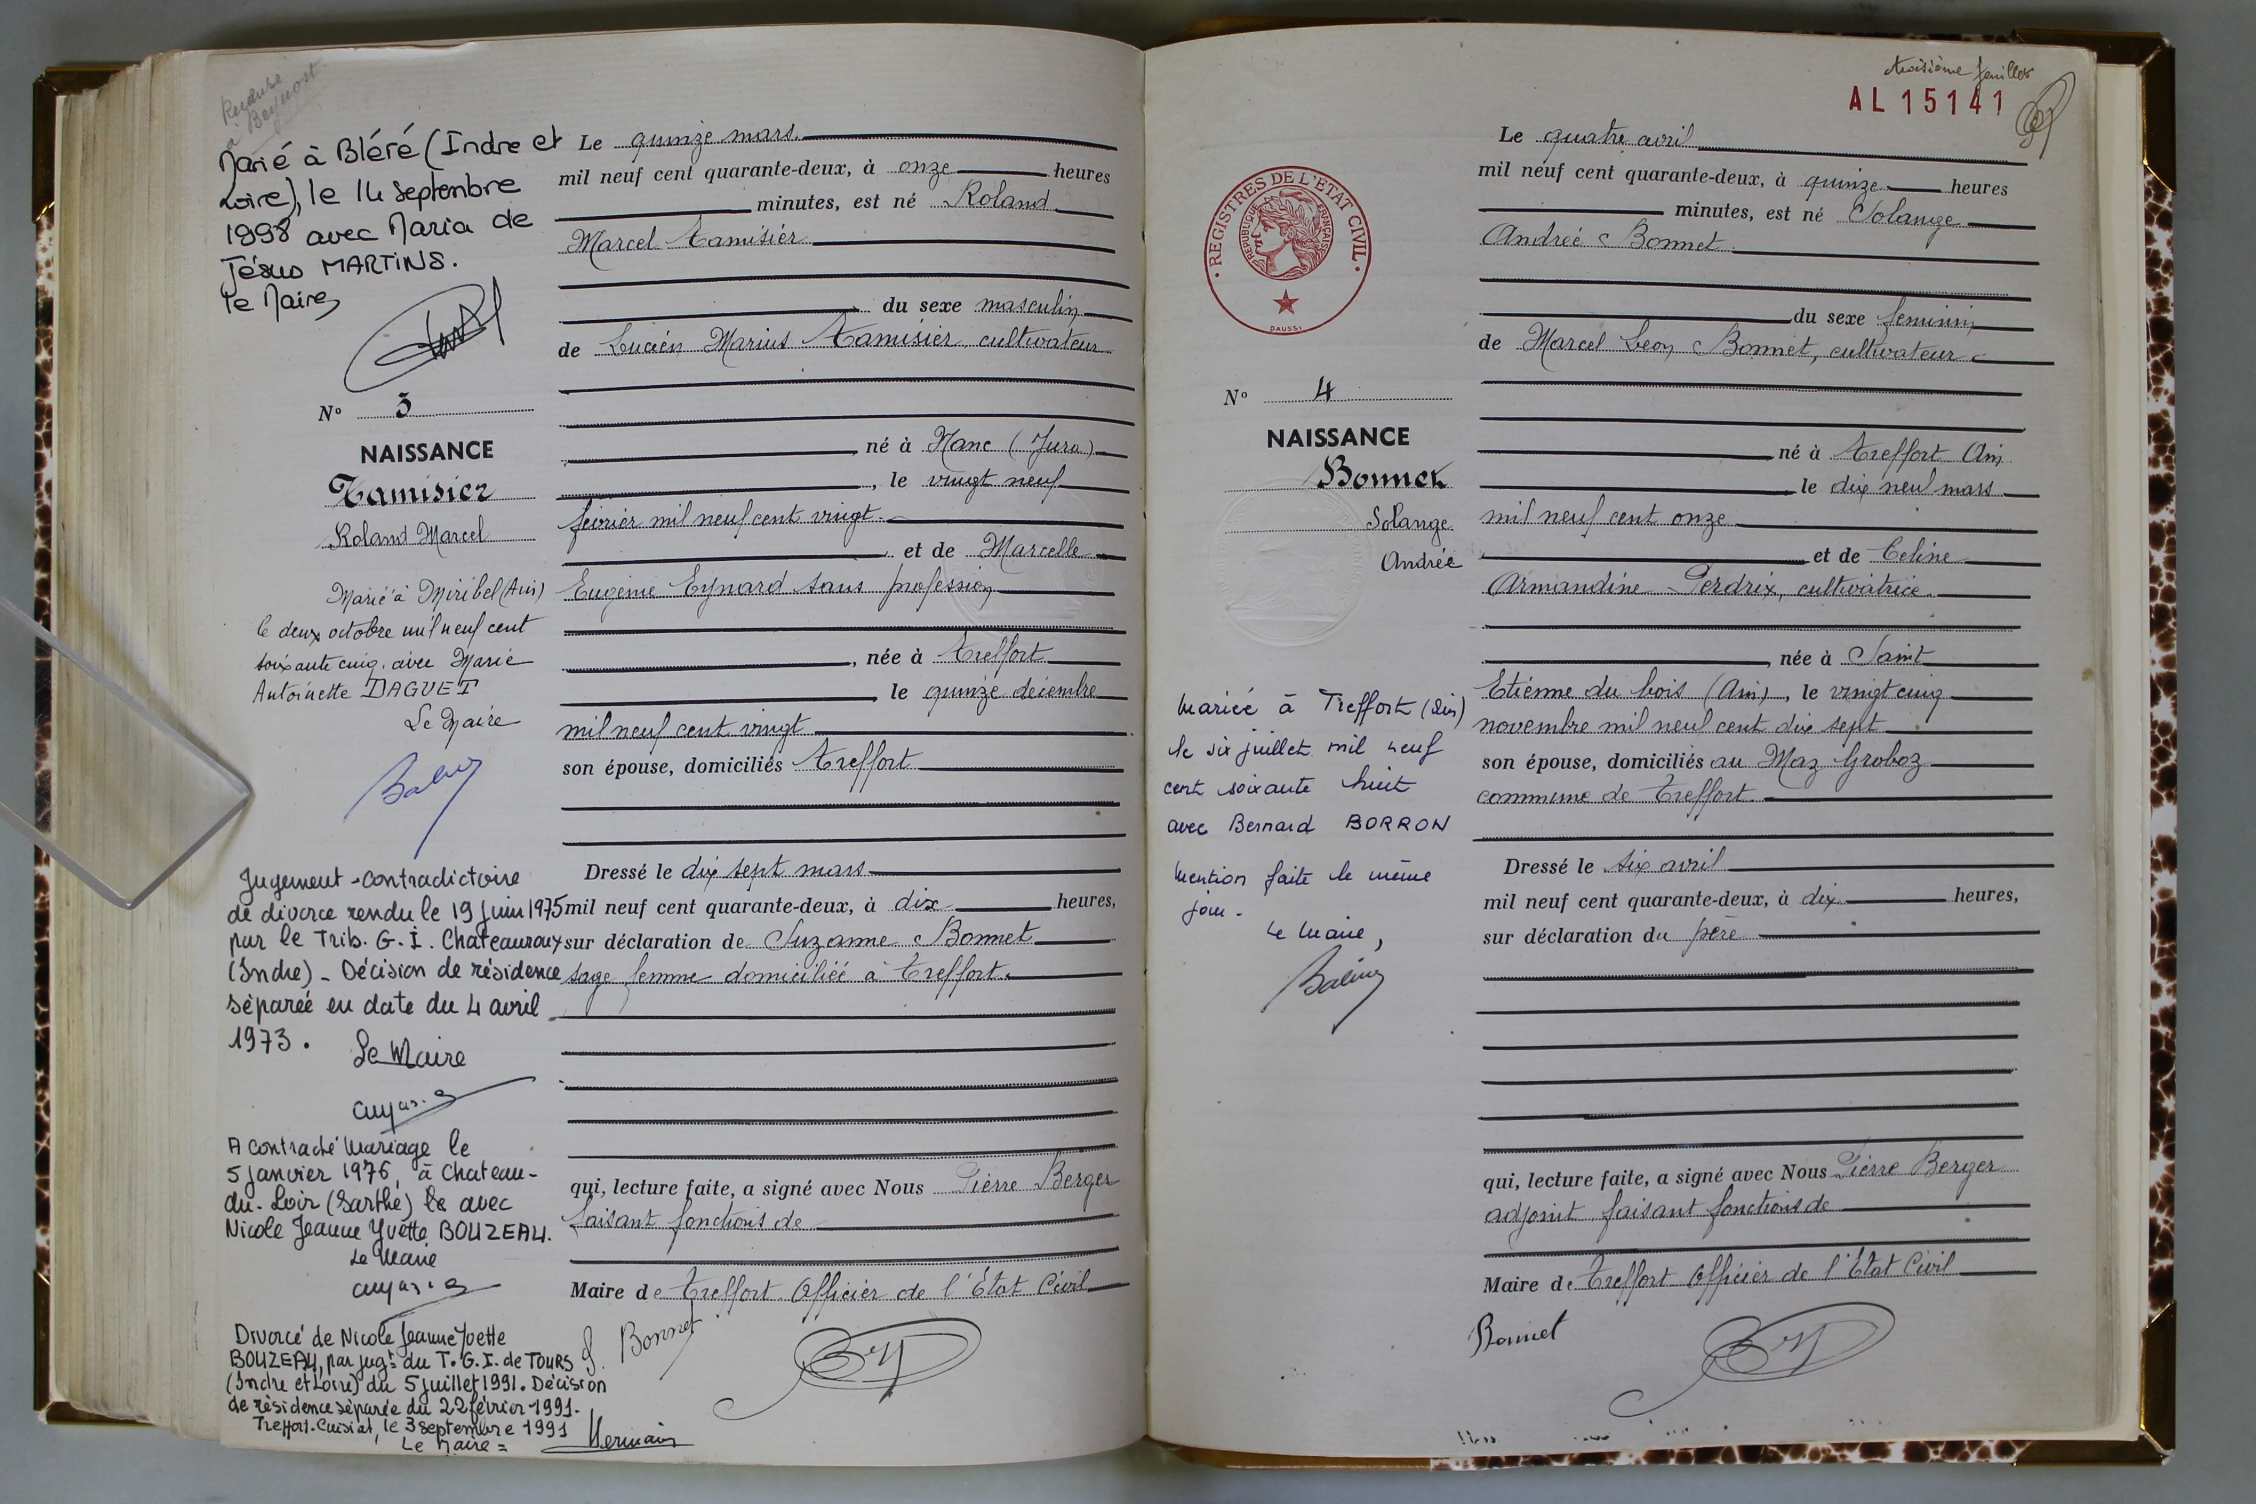 Marié à Bléré (Indre et
Loire), le 14 septembre
1998 avec Maria de
Jésus MARTINS.
le Maire,
N° 3
NAISSANCE
Tamisier
Roland Marcel
Marié à Miribel (Ain)
le deux octobre mil neuf cent
soixante cinq avec Marie
Antoinette DAGUET
Le Maire
Jugement contradictoire
de divorce rendu le 19 juin 1975
par le Trib. G. I. Chateauroux
(Indre) - Décision de résidence
séparée en date du 4 avril
1973.
Le Maire
A contracté mariage le
5 janvier 1976, à Chateau-
du-Loir (Sarthe) le avec
Nicole Jeanne Yvette BOUZEAU.
Le Maire
Divorcé de Nicole Jeanne Yvette
BOUZEAU, par jugt du T.G.I. de TOURS
(Indre et Loire) du 5 juillet 1991. Décision
de résidence séparée du 22 février 1991.
Treffort-Cuisiat, le 3 septembre 1991
Le Maire =
Le quinze mars
mil neuf cent quarante-deux, à onze heures
minutes, est né Roland
Marcel Tamisier
du sexe masculin
de Lucien Marius Tamisier, cultivateur
né à Nanc (Jura)
, le vingt neuf
février mil neuf cent vingt
et de Marcelle
Eugénie Eynard sans profession
, née à Treffort
le quinze décembre
mil neuf cent vingt
son épouse, domiciliés Treffort
Dressé le dix sept mars
mil neuf cent quarante-deux, à dix heures,
sur déclaration de Suzanne Bonnet
sage femme domiciliée à Treffort
qui, lecture faite, a signé avec Nous Pierre Berger
faisant fonctions de
Maire de Treffort Officier de l'État Civil
S. Bonnet
troisième feuillet
AL 15141
REGISTRES DE L'ETAT CIVIL
REPUBLIQUE FRANÇAISE
DAUSSY
N° 4
NAISSANCE
Bonnet
Solange
Andrée
Mariée à Treffort (Ain)
le six juillet mil neuf
cent soixante huit
avec Bernard BORRON
Mention faite le même
jour.
Le Maire,
Le quatre avril
mil neuf cent quarante-deux, à quinze heures
minutes, est né Solange
Andreé Bonnet
du sexe feminin
de Marcel Léon Bonnet, cultivateur
né à Treffort Ain
le dix neuf mars
mil neuf cent onze
et de Celine
Armandine Perdrix, cultivatrice
, née à Saint
Etienne du bois (Ain), le vingt cinq
novembre mil neuf cent dix sept
son épouse, domiciliés au Maz Groboz
commune de Treffort
Dressé le six avril
mil neuf cent quarante-deux, à dix heures,
sur déclaration du père
qui, lecture faite, a signé avec Nous Pierre Berger
adjoint faisant fonctions de
Maire de Treffort Officier de l'État Civil
Bonnet